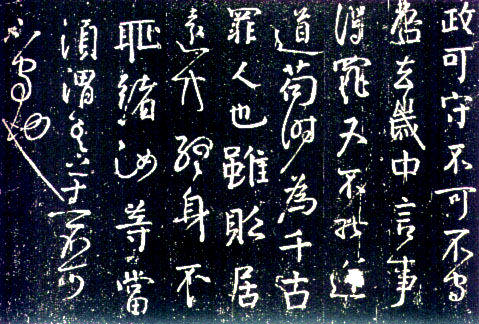 政可守不可不守
吾去歲中言事
得罪又不能逆
道苟時為千古
罪人也雖貶居
遠方終身不
恥緒汝等當
須謂吾之志不可
不守也